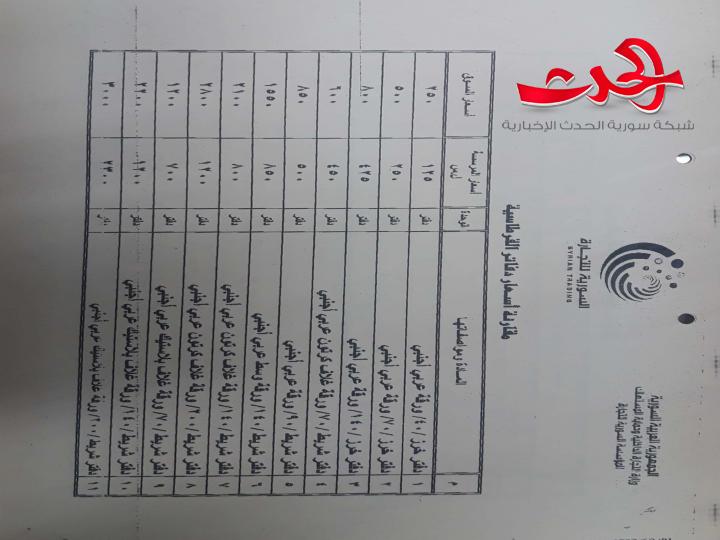 الحدث
شبكة سورية الحدث الإخبارية
الجمهورية العربية السورية
وزارة التجارة الداخلية وحماية المستهلك
المؤسسة السورية للتجارة
السورية للتجارة
SYRIAN TRADING
مقارنة أسعار دفاتر القرطاسية
م المادة ومواصفاتها الوحدة أسعار المؤسسة ل.س أسعار السوق
١ دفتر خرز /٤٠/ ورقة عربي أجنبي دفتر ١٢٥ ٢٥٠
٢ دفتر خرز /٧٠/ ورقة عربي أجنبي دفتر ٢٥٠ ٥٠٠
٣ دفتر خرز /١٤٠/ ورقة عربي أجنبي دفتر ٤٢٥ ٨٠٠
٤ دفتر شريط /٧٠/ ورقة غلاف كرتون عربي أجنبي دفتر ٤٥٠ ٦٠٠
٥ دفتر شريط /٩٠/ ورقة عربي أجنبي دفتر ٥٠٠ ٨٥٠
٦ دفتر شريط /١٤٠/ ورقة وسط عربي أجنبي دفتر ٨٥٠ ١٥٥٠
٧ دفتر شريط /١٤٠/ ورقة غلاف كرتون عربي أجنبي دفتر ٨٠٠ ٢١٠٠
٨ دفتر شريط /٢٠٠/ ورقة غلاف كرتون عربي أجنبي دفتر ١٢٠٠ ٢٨٠٠
٩ دفتر شريط /٧٠/ ورقة غلاف بلاستيك عربي أجنبي دفتر ٧٠٠ ١٢٠٠
١٠ دفتر شريط /١٤٠/ ورقة غلاف بلاستيك عربي أجنبي دفتر ١٢٠٠ ٢٢٠٠
١١ دفتر شريط /٢٠٠/ ورقة غلاف بلاستيك عربي أجنبي دفتر ٢٣٠٠ ٣٠٠٠